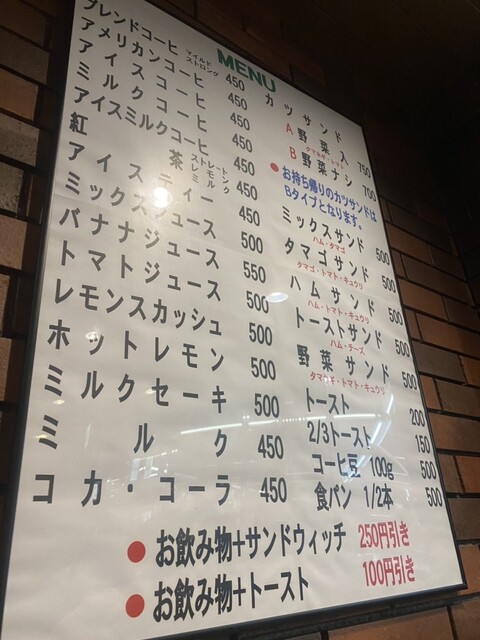 MENU
ブレンドコーヒ マイルド ストロング 450
アメリカンコーヒ 450
アイスコーヒ 450
ミルクコーヒ 450
アイスミルクコーヒ 450
紅茶 ストレート レモン ミルク 450
アイスティー 450
ミックスジュース 500
バナナジュース 550
トマトジュース 500
レモンスカッシュ 500
ホットレモン 500
ミルクセーキ 500
ミルク 450
コカ・コーラ 450
カツサンド
A 野菜入 750
タマネギ・トマト
B 野菜ナシ 700
●お持ち帰りのカツサンドは
Bタイプとなります。
ミックスサンド 500
ハム・タマゴ
タマゴサンド 500
タマゴ・トマト・キュウリ
ハムサンド 500
ハム・トマト・キュウリ
トーストサンド 500
ハム・チーズ
野菜サンド 500
タマネギ・トマト・キュウリ
トースト 200
2/3トースト 150
コーヒ豆 100g 500
食パン 1/2本 500
●お飲み物+サンドウィッチ 250円引き
●お飲み物+トースト 100円引き